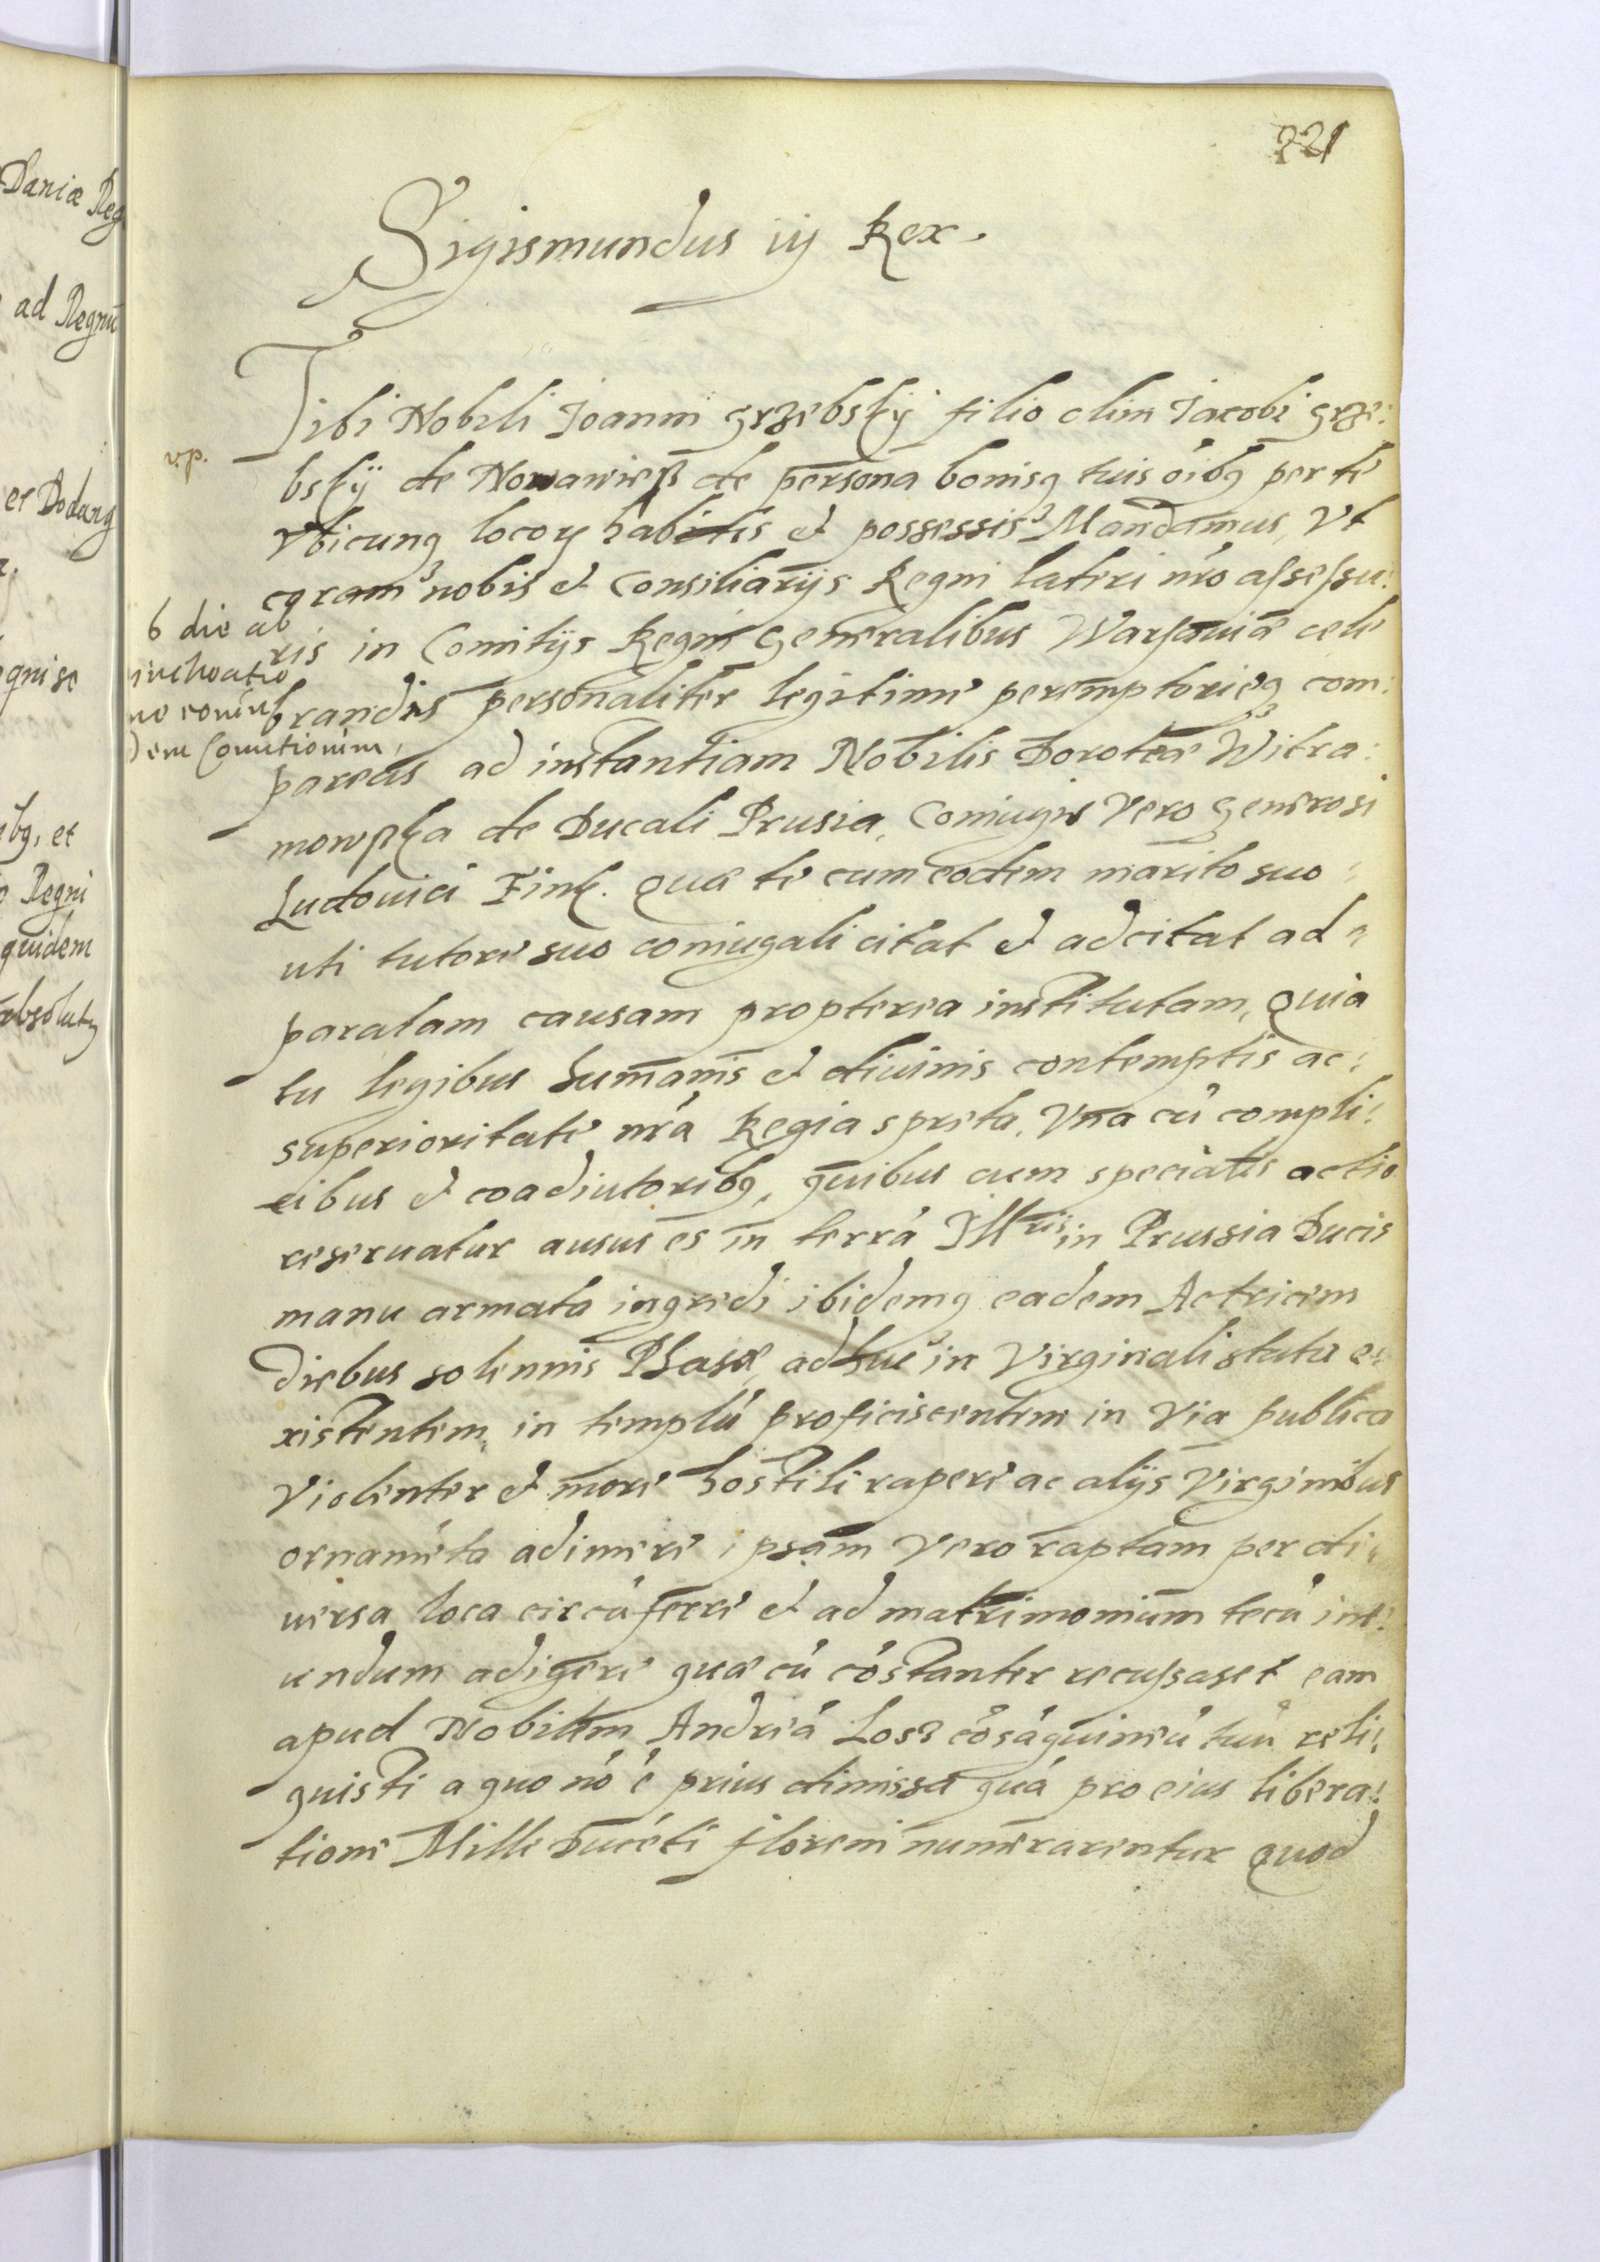 221
Sigismundus iij Rex.
Tibi Nobili Joanni Grzebskÿ filio olim Jacobi Grze:
vp.
bskÿ de Nowawieß de persona bonisq tuis oibq per te
Vbicunq locorų habitis et possessis Mandamus, Vt
coram nobis et Consiliarijs Regni lateri nro assessu:
6 die ab
ris in Comitijs Regni Generalibus Warsaviæ cele
inchoatio
brandis personaliter legitime peremptorieq com:
dem Comitiorum,
pareas ad instantiam Nobilis Doroteæ Witra:
mowska de Ducali Prusia, Coniugis Vero Generosi
Ludovici Fink. Quæ te cum eodem marito suo
uti tutore suo coniugali citat et adcitat ad
paratam causam propterea institutam, Quia
tu legibus humanis et divinis contemptis ac
superioritate nra Regia spreta, Vna cu compli:
cibus et coadiutoribq, quibus cum specialis actio
reservatur ausus es in terra Illris in Prussia Ducis
manu armata ingredi ibidemq eadem Actricem
diebus solennis Phasæ, adhuc in Virginali statu e
xistentem, in templu proficiscentem in Via publica
Violenter et more hostili rapere ac alijs Virginibus
ornameta adimere ipsam Vero raptam per di
versa loca circuferre et ad matrimonium tecu ine
undum adigere quæ cu costanter recusaset eam
apud Nobilem Andrea Loss cosaguineu tuu reli:
quisti a quo no e prius dimissa qua pro eius libera:
tione Mille Duceti floreni numerarentur Quod
Daniæ Reg
ad Regnu
et Dodang
qui se
ibq, et
Regni
quidem
absolutq